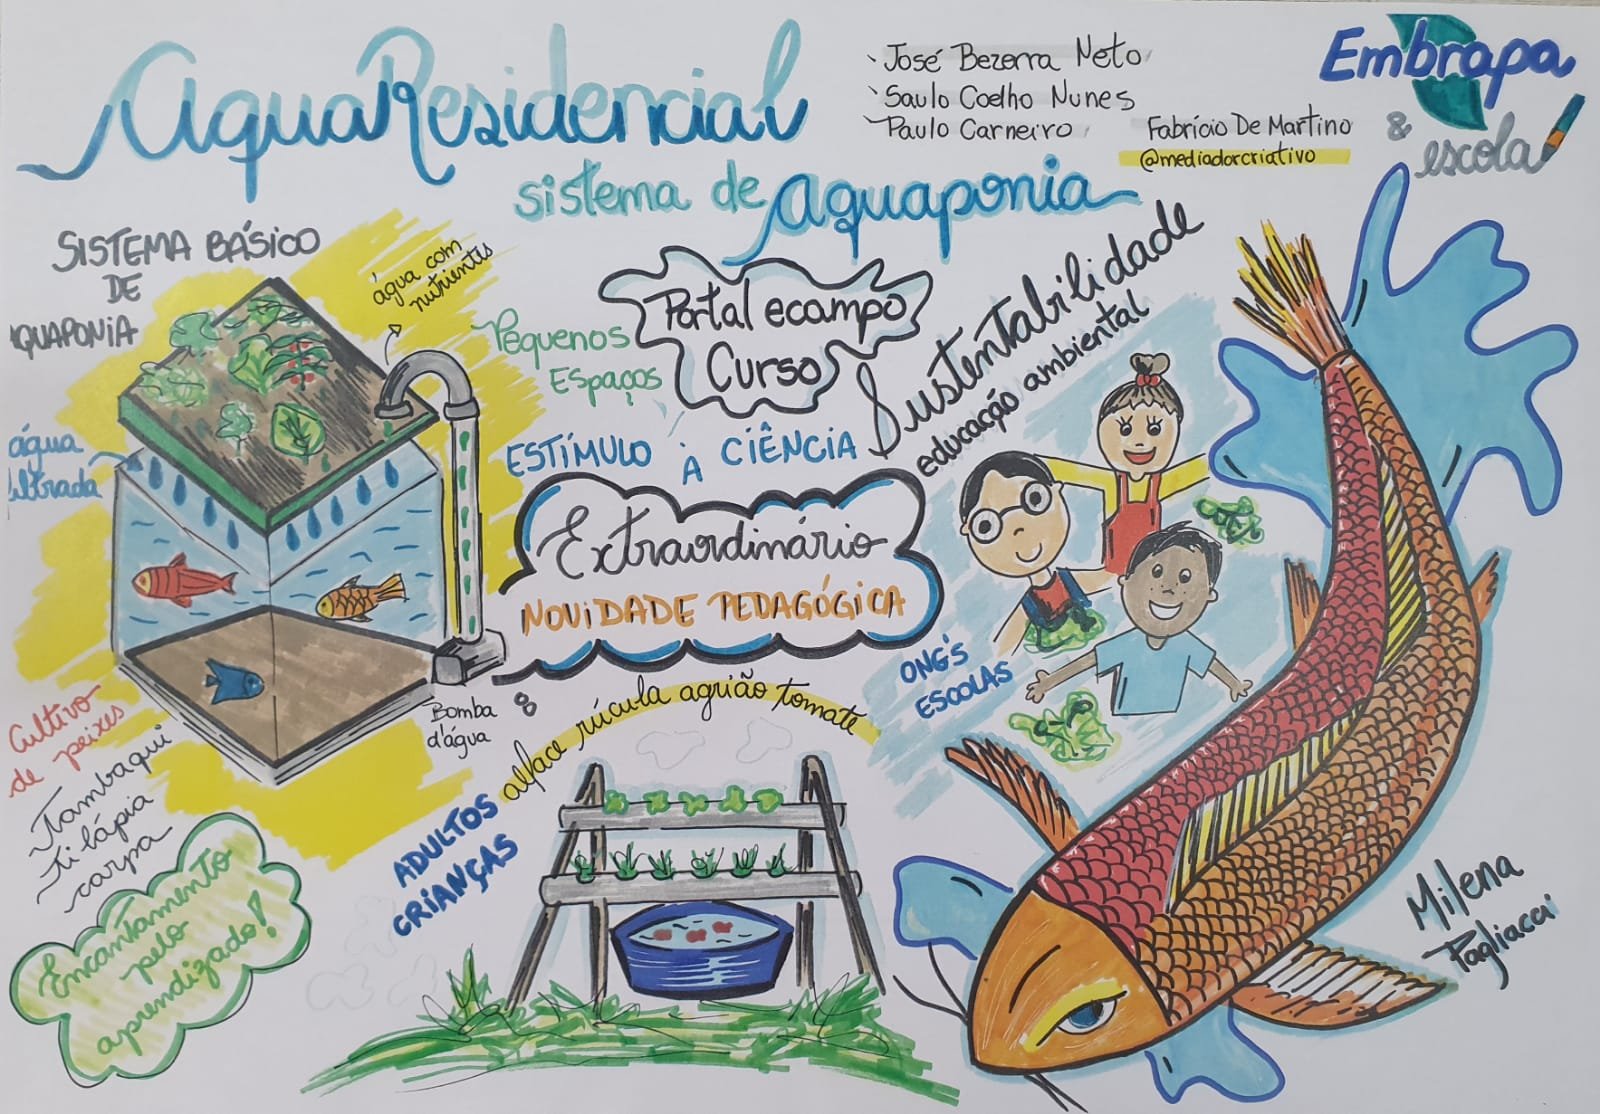 AquaResidencial
sistema de aquaponia
José Bezerra Neto
Saulo Coelho Nunes
Paulo Carneiro
Fabrício De Martino
@mediadorcriativo
Embrapa
&
escola
SISTEMA BÁSICO
DE
QUAPONIA
água com
nutrientes
água
filtrada
Pequenos
Espaços
Portal ecampo
Curso
Sustentabilidade
educação ambiental
ESTÍMULO À CIÊNCIA
Extraordinário
NOVIDADE PEDAGÓGICA
&
ONG'S
ESCOLAS
Cultivo
de peixes
Tambaqui
tilápia
carpa
Bomba
d'água
alface rúcula agrião tomate
ADULTOS
CRIANÇAS
Encantamento
pelo
aprendizado!
Milena
Pagliacci